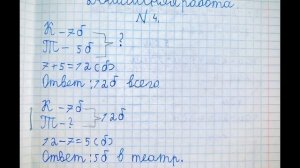 Домашняя работа
N 4.
К – 7б
Т – 5б } ?
7+5=12(б)
Ответ: 12б всего
К – 7б
Т – ? } 12б
12–7=5(б)
Ответ: 5б в театр.